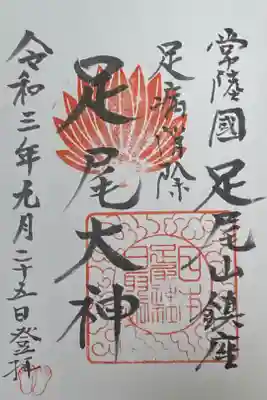 常陸國 足尾山鎮座
足病
足尾大神
令和三年九月二十五日登拝
日本